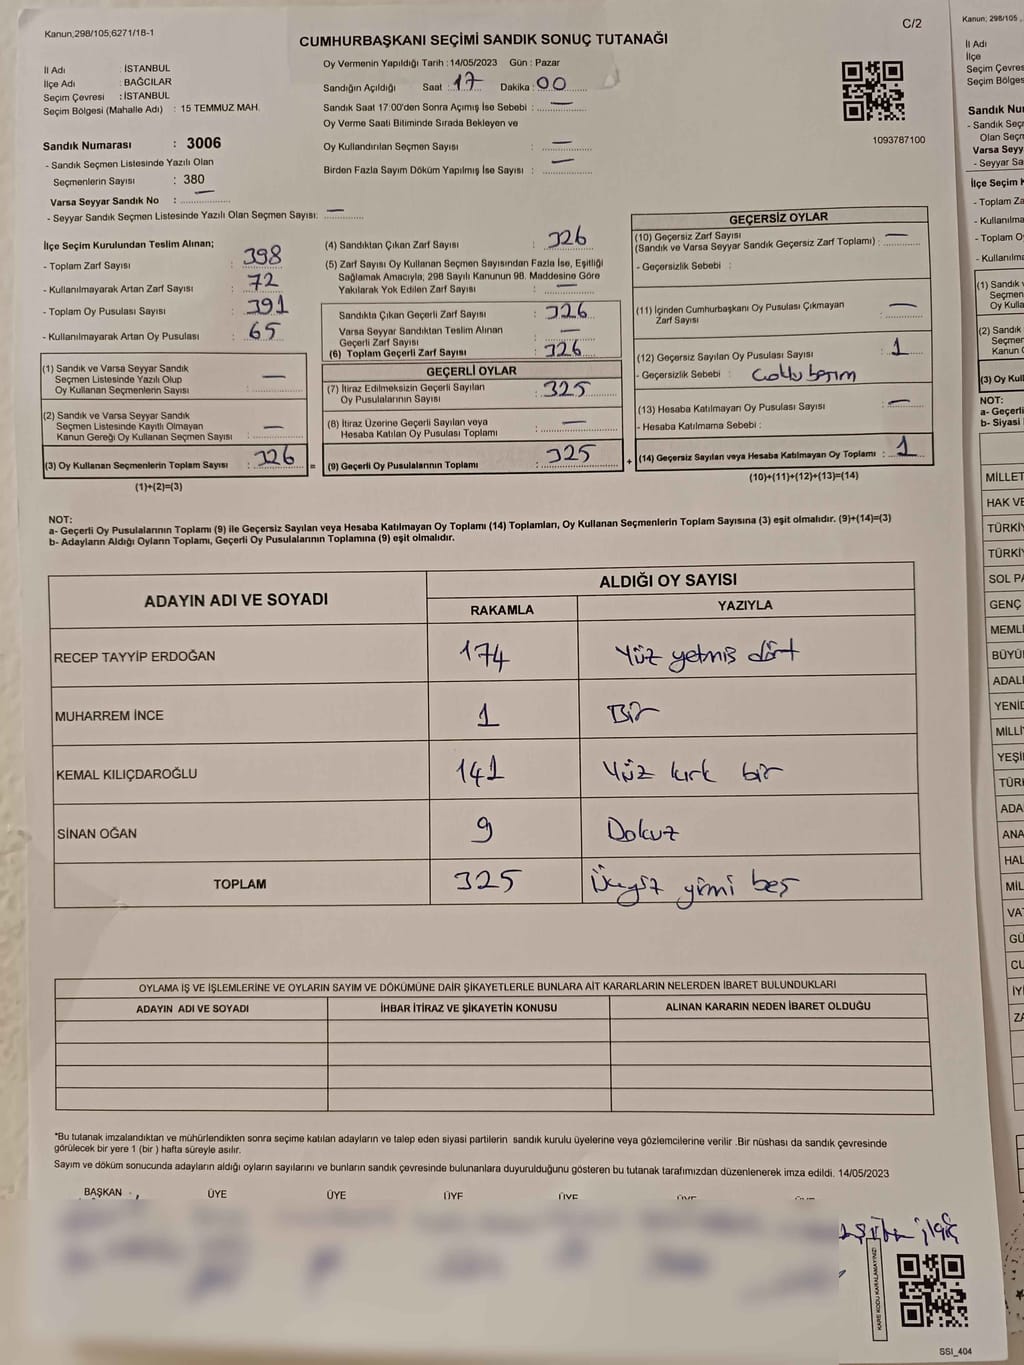 Kanun;298/105;6271/18-1
C/2
CUMHURBAŞKANI SEÇİMİ SANDIK SONUÇ TUTANAĞI
İl Adı : İSTANBUL
İlçe Adı : BAĞCILAR
Seçim Çevresi : İSTANBUL
Seçim Bölgesi (Mahalle Adı) : 15 TEMMUZ MAH.
Oy Vermenin Yapıldığı Tarih : 14/05/2023 Gün : Pazar
Sandığın Açıldığı Saat : 17 Dakika : 00
Sandık Saat 17:00'den Sonra Açılmış İse Sebebi : —
Oy Verme Saati Bitiminde Sırada Bekleyen ve
Oy Kullandırılan Seçmen Sayısı : —
Birden Fazla Sayım Döküm Yapılmış İse Sayısı : —
1093787100
Sandık Numarası : 3006
- Sandık Seçmen Listesinde Yazılı Olan
Seçmenlerin Sayısı : 380
Varsa Seyyar Sandık No : —
- Seyyar Sandık Seçmen Listesinde Yazılı Olan Seçmen Sayısı: —
İlçe Seçim Kurulundan Teslim Alınan;
- Toplam Zarf Sayısı : 398
- Kullanılmayarak Artan Zarf Sayısı : 72
- Toplam Oy Pusulası Sayısı : 391
- Kullanılmayarak Artan Oy Pusulası : 65
(1) Sandık ve Varsa Seyyar Sandık
Seçmen Listesinde Yazılı Olup
Oy Kullanan Seçmenlerin Sayısı : —
(2) Sandık ve Varsa Seyyar Sandık
Seçmen Listesinde Kayıtlı Olmayan
Kanun Gereği Oy Kullanan Seçmen Sayısı : —
(3) Oy Kullanan Seçmenlerin Toplam Sayısı : 326
(1)+(2)=(3)
=
(4) Sandıktan Çıkan Zarf Sayısı : 326
(5) Zarf Sayısı Oy Kullanan Seçmen Sayısından Fazla İse, Eşitliği
Sağlamak Amacıyla; 298 Sayılı Kanunun 98. Maddesine Göre
Yakılarak Yok Edilen Zarf Sayısı : —
Sandıkta Çıkan Geçerli Zarf Sayısı : 326
Varsa Seyyar Sandıktan Teslim Alınan
Geçerli Zarf Sayısı : —
(6) Toplam Geçerli Zarf Sayısı : 326
GEÇERLİ OYLAR
(7) İtiraz Edilmeksizin Geçerli Sayılan
Oy Pusulalarının Sayısı : 325
(8) İtiraz Üzerine Geçerli Sayılan veya
Hesaba Katılan Oy Pusulası Toplamı : —
(9) Geçerli Oy Pusulalarının Toplamı : 325
+
GEÇERSİZ OYLAR
(10) Geçersiz Zarf Sayısı
(Sandık ve Varsa Seyyar Sandık Geçersiz Zarf Toplamı) : —
- Geçersizlik Sebebi :
(11) İçinden Cumhurbaşkanı Oy Pusulası Çıkmayan
Zarf Sayısı : —
(12) Geçersiz Sayılan Oy Pusulası Sayısı : 1
- Geçersizlik Sebebi :
(13) Hesaba Katılmayan Oy Pusulası Sayısı : —
- Hesaba Katılmama Sebebi :
(14) Geçersiz Sayılan veya Hesaba Katılmayan Oy Toplamı : 1
(10)+(11)+(12)+(13)=(14)
NOT:
a- Geçerli Oy Pusulalarının Toplamı (9) ile Geçersiz Sayılan veya Hesaba Katılmayan Oy Toplamı (14) Toplamları, Oy Kullanan Seçmenlerin Toplam Sayısına (3) eşit olmalıdır. (9)+(14)=(3)
b- Adayların Aldığı Oyların Toplamı, Geçerli Oy Pusulalarının Toplamına (9) eşit olmalıdır.
ADAYIN ADI VE SOYADI
ALDIĞI OY SAYISI
RAKAMLA YAZIYLA
RECEP TAYYİP ERDOĞAN 174 Yüz yetmiş dört
MUHARREM İNCE 1 Bir
KEMAL KILIÇDAROĞLU 141 Yüz kırk bir
SİNAN OĞAN 9 Dokuz
TOPLAM 325 Üçyüz yirmi beş
OYLAMA İŞ VE İŞLEMLERİNE VE OYLARIN SAYIM VE DÖKÜMÜNE DAİR ŞİKAYETLERLE BUNLARA AİT KARARLARIN NELERDEN İBARET BULUNDUKLARI
ADAYIN ADI VE SOYADI İHBAR İTİRAZ VE ŞİKAYETİN KONUSU ALINAN KARARIN NEDEN İBARET OLDUĞU
*Bu tutanak imzalandıktan ve mühürlendikten sonra seçime katılan adayların ve talep eden siyasi partilerin sandık kurulu üyelerine veya gözlemcilerine verilir .Bir nüshası da sandık çevresinde
görülecek bir yere 1 (bir ) hafta süreyle asılır.
Sayım ve döküm sonucunda adayların aldığı oyların sayılarını ve bunların sandık çevresinde bulunanlara duyurulduğunu gösteren bu tutanak tarafımızdan düzenlenerek imza edildi. 14/05/2023
BAŞKAN ÜYE ÜYE ÜYE ÜYE ÜYE ÜYE
KARE KODU KARALAMAYINIZ!
SSI_404
Kanun; 298/105
İl Adı
İlçe
Seçim Çevres
Seçim Bölges
- Toplam Za
- Kullanılma
- Toplam O
- Kullanılma
NOT:
a- Geçerli
b- Siyasi
MİLLET
HAK VE
TÜRKİY
TÜRKİ
SOL PA
GENÇ
MEML
BÜYÜ
ADAL
YENİD
MİLLİ
YEŞİ
TÜRI
ADA
ANA
HAL
MİL
VA
GÜ
CU
İYİ
ZA